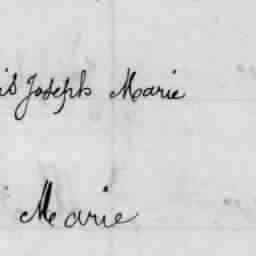 is Joseph Marie
Marie